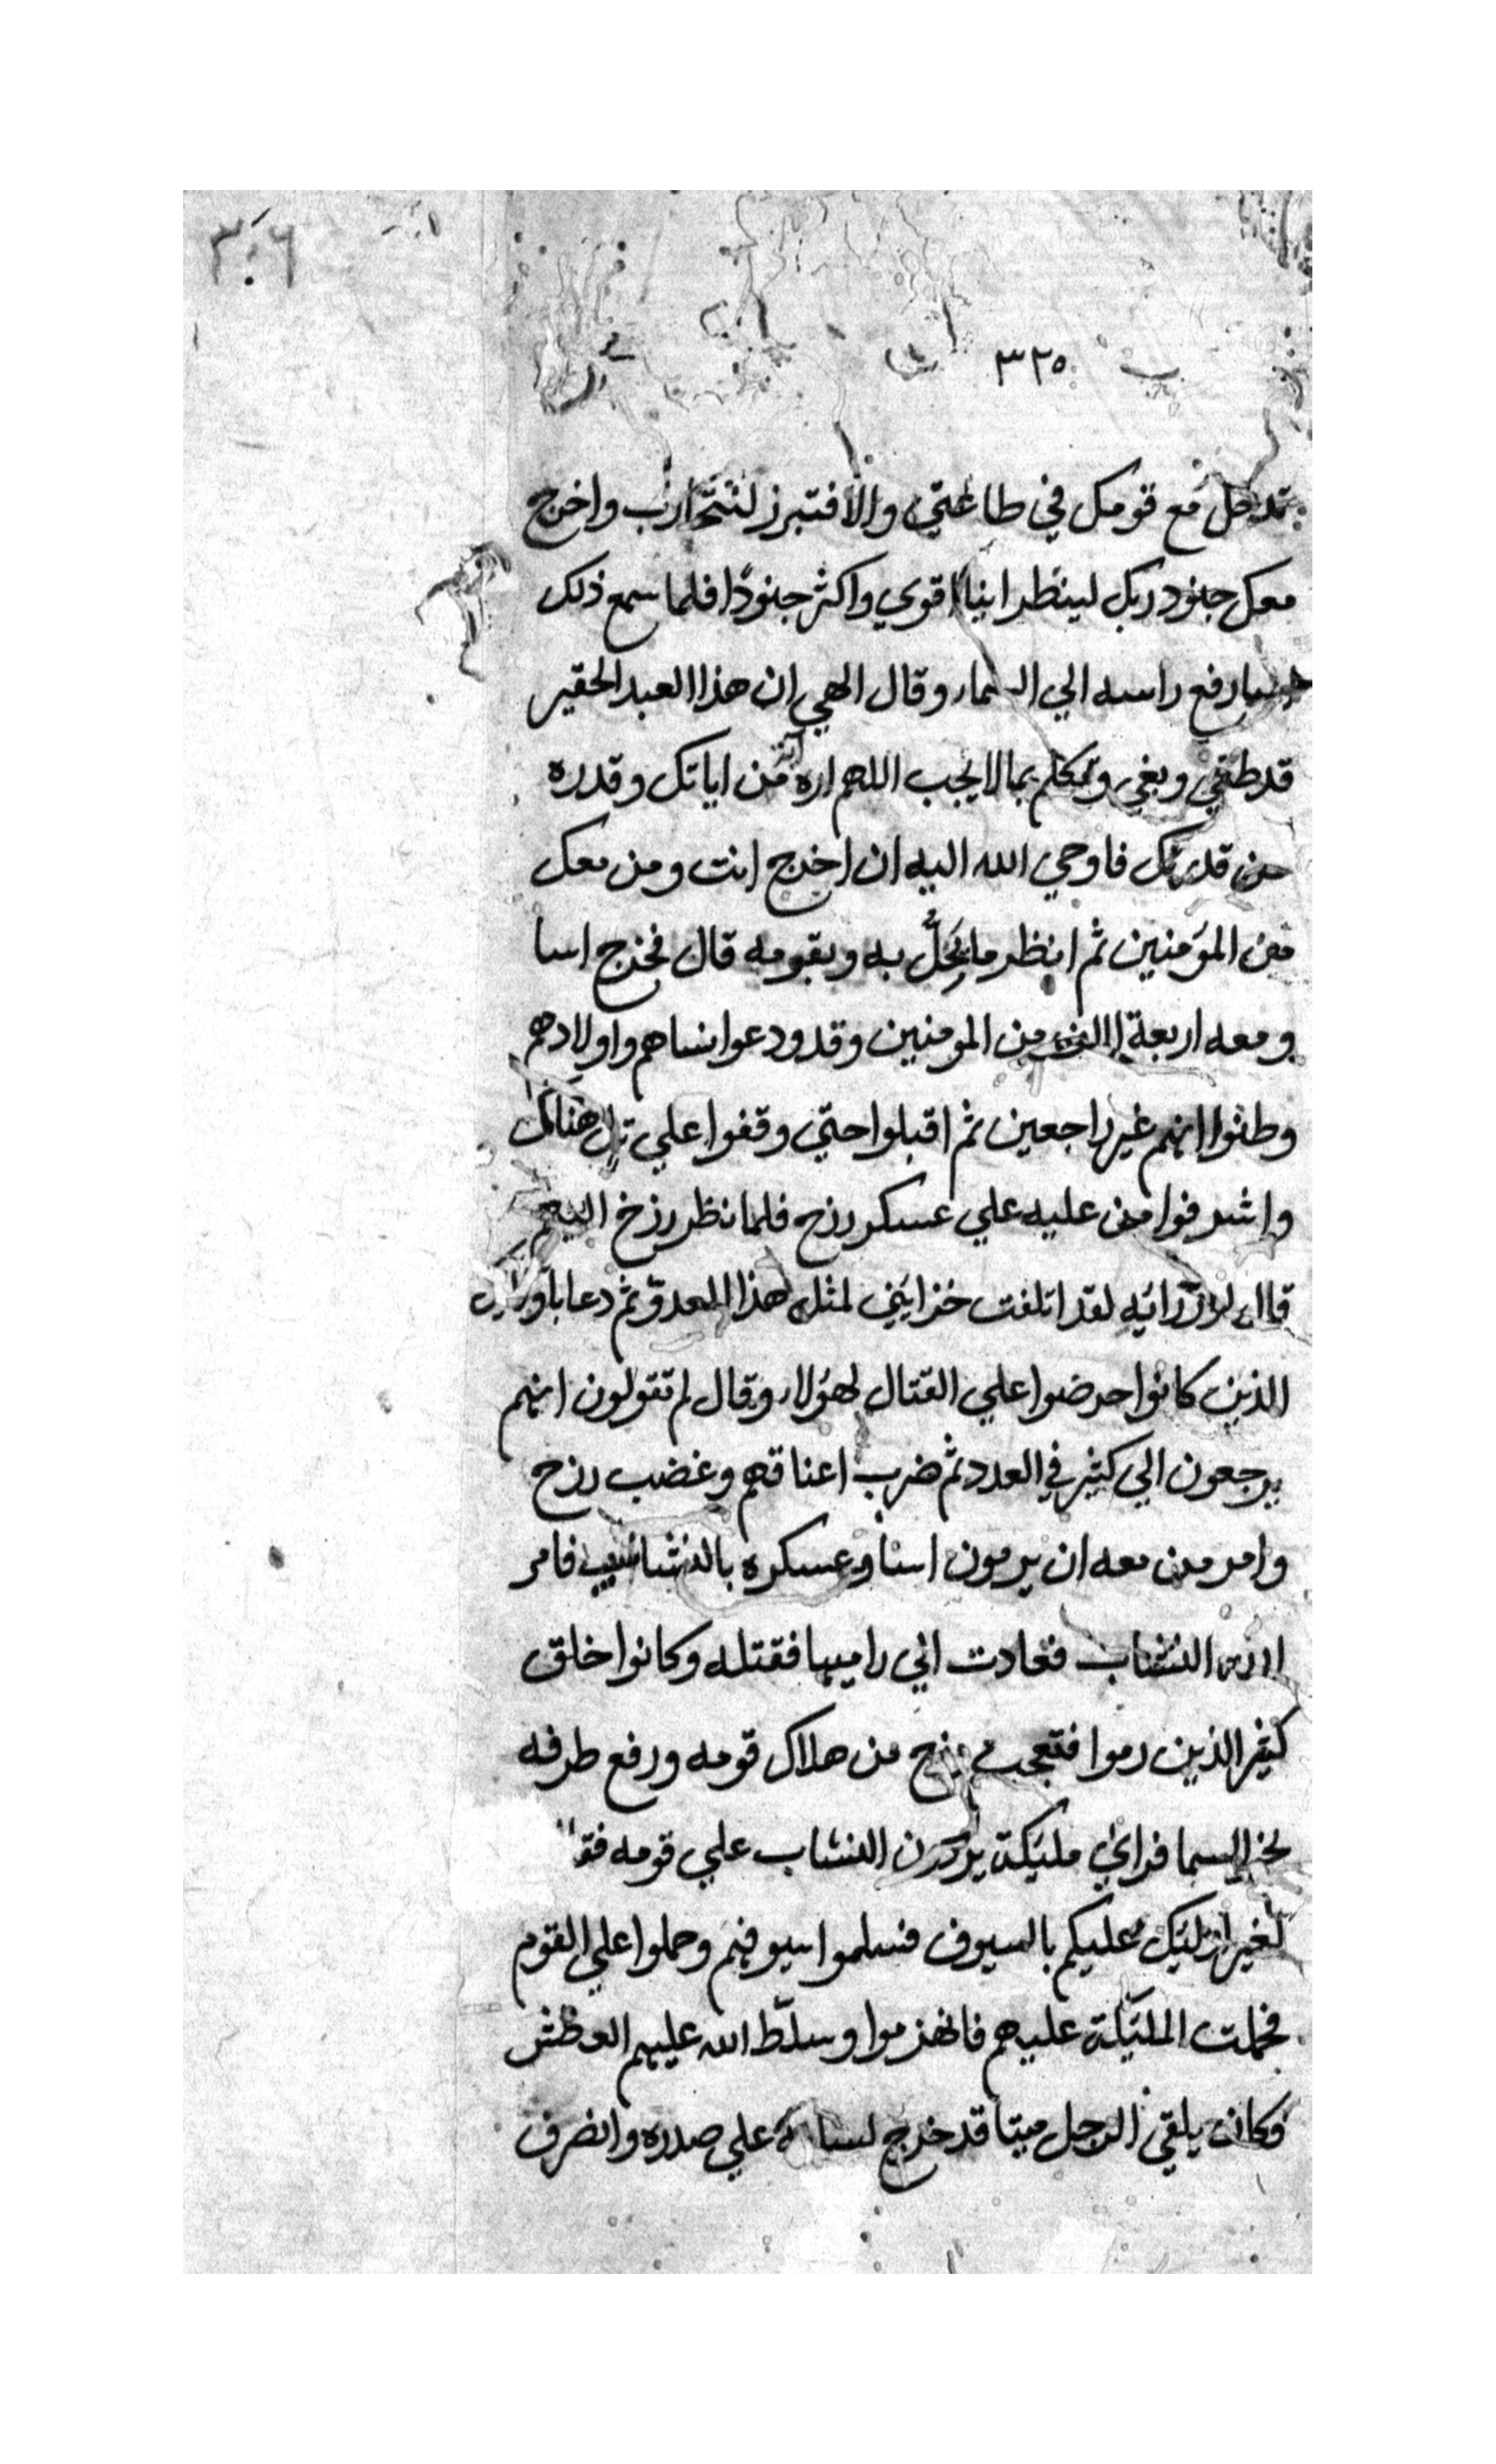 ٣٠٦
٣٢٥
تدخل مع قومك في طاعتي والا فتبرز لنتحارب واخرج
معك جنود ربك لينظر اينا اقوي واكثر جنودًا فلما سمع ذلك
رفع راسه الي السماء وقال الهي ان هذا العبد الحقير
قد طغي وبغي وتكلم بما لا يجب اللهم اره من اياتك وقدره
من قدرتك فاوحي الله اليه ان اخرج انت ومن معك
من المؤمنين ثم انظر ما يحلّ به وبقومه قال فخرج اسا
ومعه اربعة الاف من المومنين وقد ودعوا نساهم واولادهم
وظنوا انهم غير راجعين ثم اقبلوا حتي وقفوا علي تل هناك
واشرفوا من عليه علي عسكر رزح فلما نظر رزخ اليهم
قال لوزرائه لقد اتلفت خزايني لمثل هذا العدوّ ثم دعا
الذين كانوا حرضوا علي القتال لهؤلاء وقال لم تقولون انهم
يرجعون الي كثير في العدد ثم ضرب اعناقهم وغضب رزح
وامر من معه ان يرمون اسا وعسكره بالنشاشيب فامر
الله النشاب فعادت الي راميها فقتله وكانوا خلق
كثير الذين رموا فتعجب رزح من هلاك قومه ورفع طرفه
نحو السما فراي مليكة يردون النشاب علي قومه
عليكم بالسيوف فسلموا سيوفهم وحملوا علي القوم
فحملت المليكة عليهم فانهزموا وسلّط الله عليهم العطش
وكان يلقي الرجل ميتا قد خرج لسانه علي صدره وانصرف